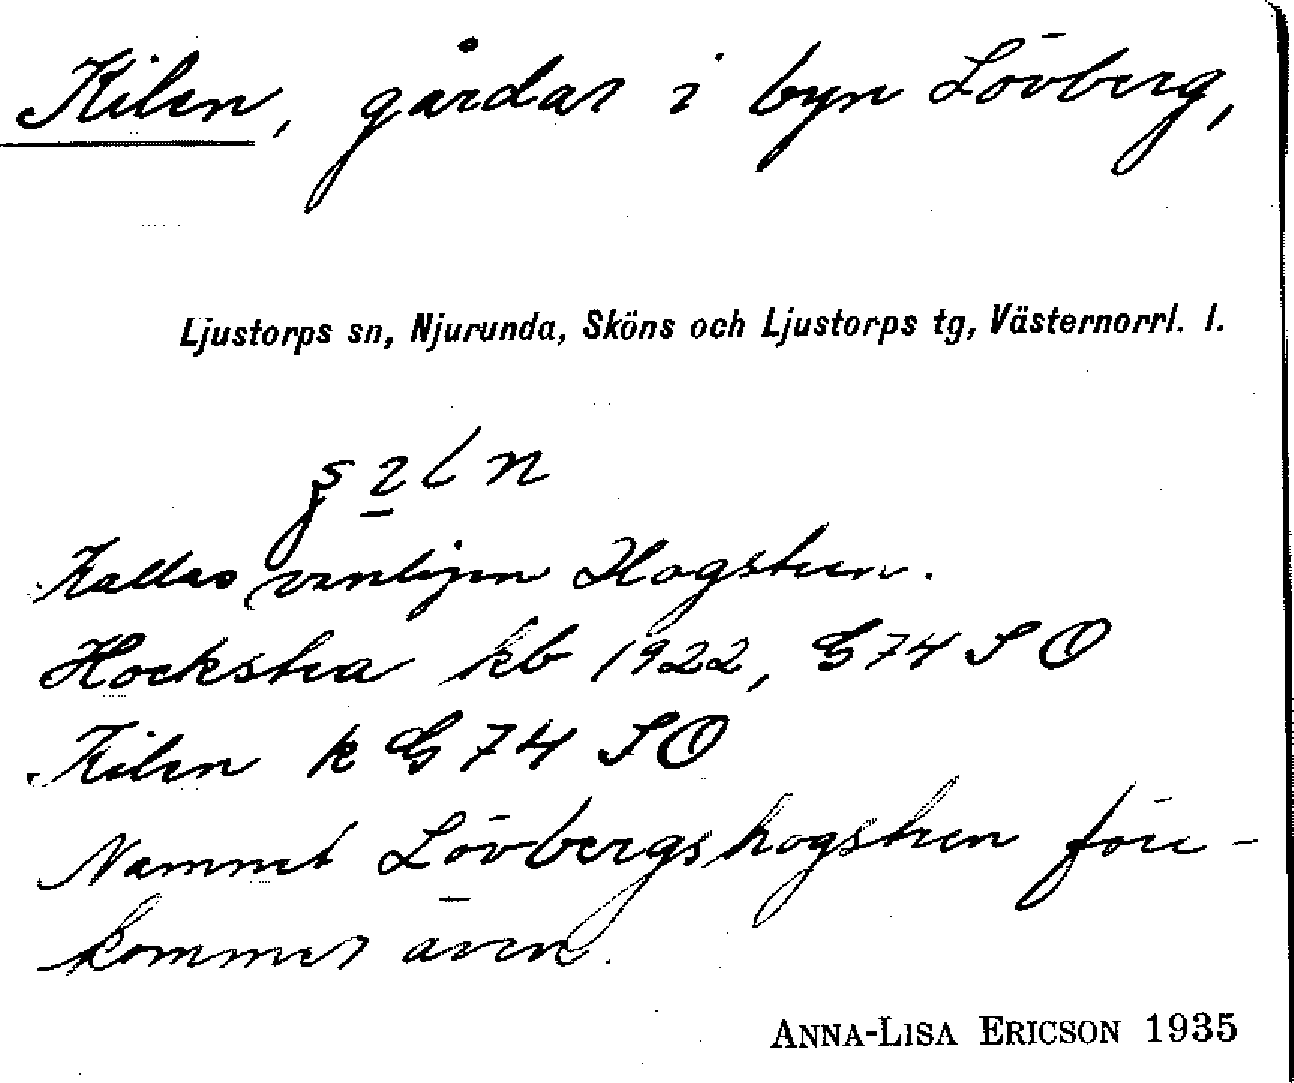 Kilen, gårdar i byn Lövberg,
Ljustorps sn, Njurunda, Sköns och Ljustorps tg, Västernorrl. l.
Kallas vanligen Hogsteen.
Hocksta kb 1922, G74 SO
Kilen k G 74 SO
Namnet Lövbergshogsteen före-
kommer även.
ANNA-LISA ERICSON 1935